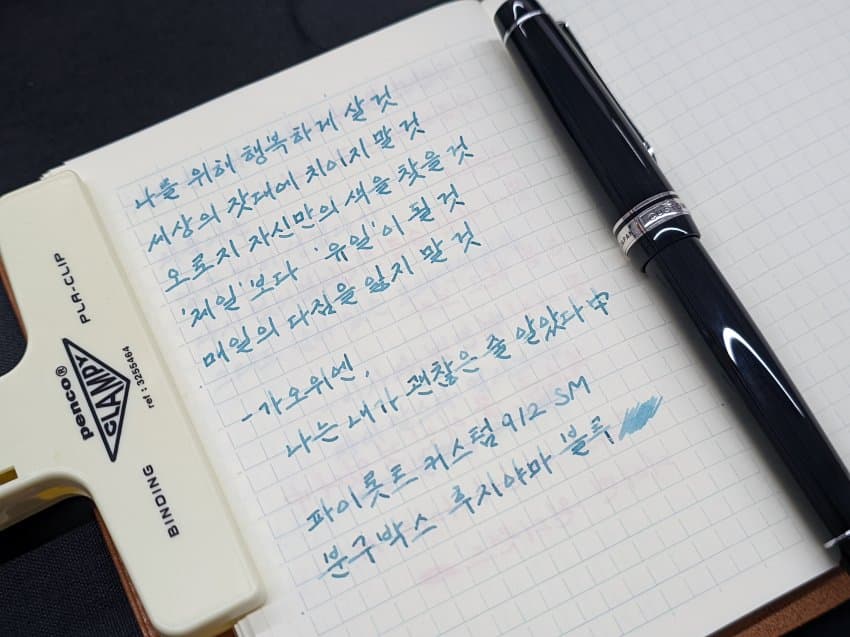 나를 위해 행복하게 살 것
세상의 잣대에 치이지 말 것
오로지 자신만의 색을 찾을 것
'제일'보다 '유일'이 될 것
매일의 다짐을 잃지 말 것
-가오위엔,
나는 내가 괜찮은 줄 알았다 中
파이롯트 커스텀 912 SM
문구박스 후지야마 블루
PLA-CLIP
penco®
CLAMPY
ref : 3255464
BINDING